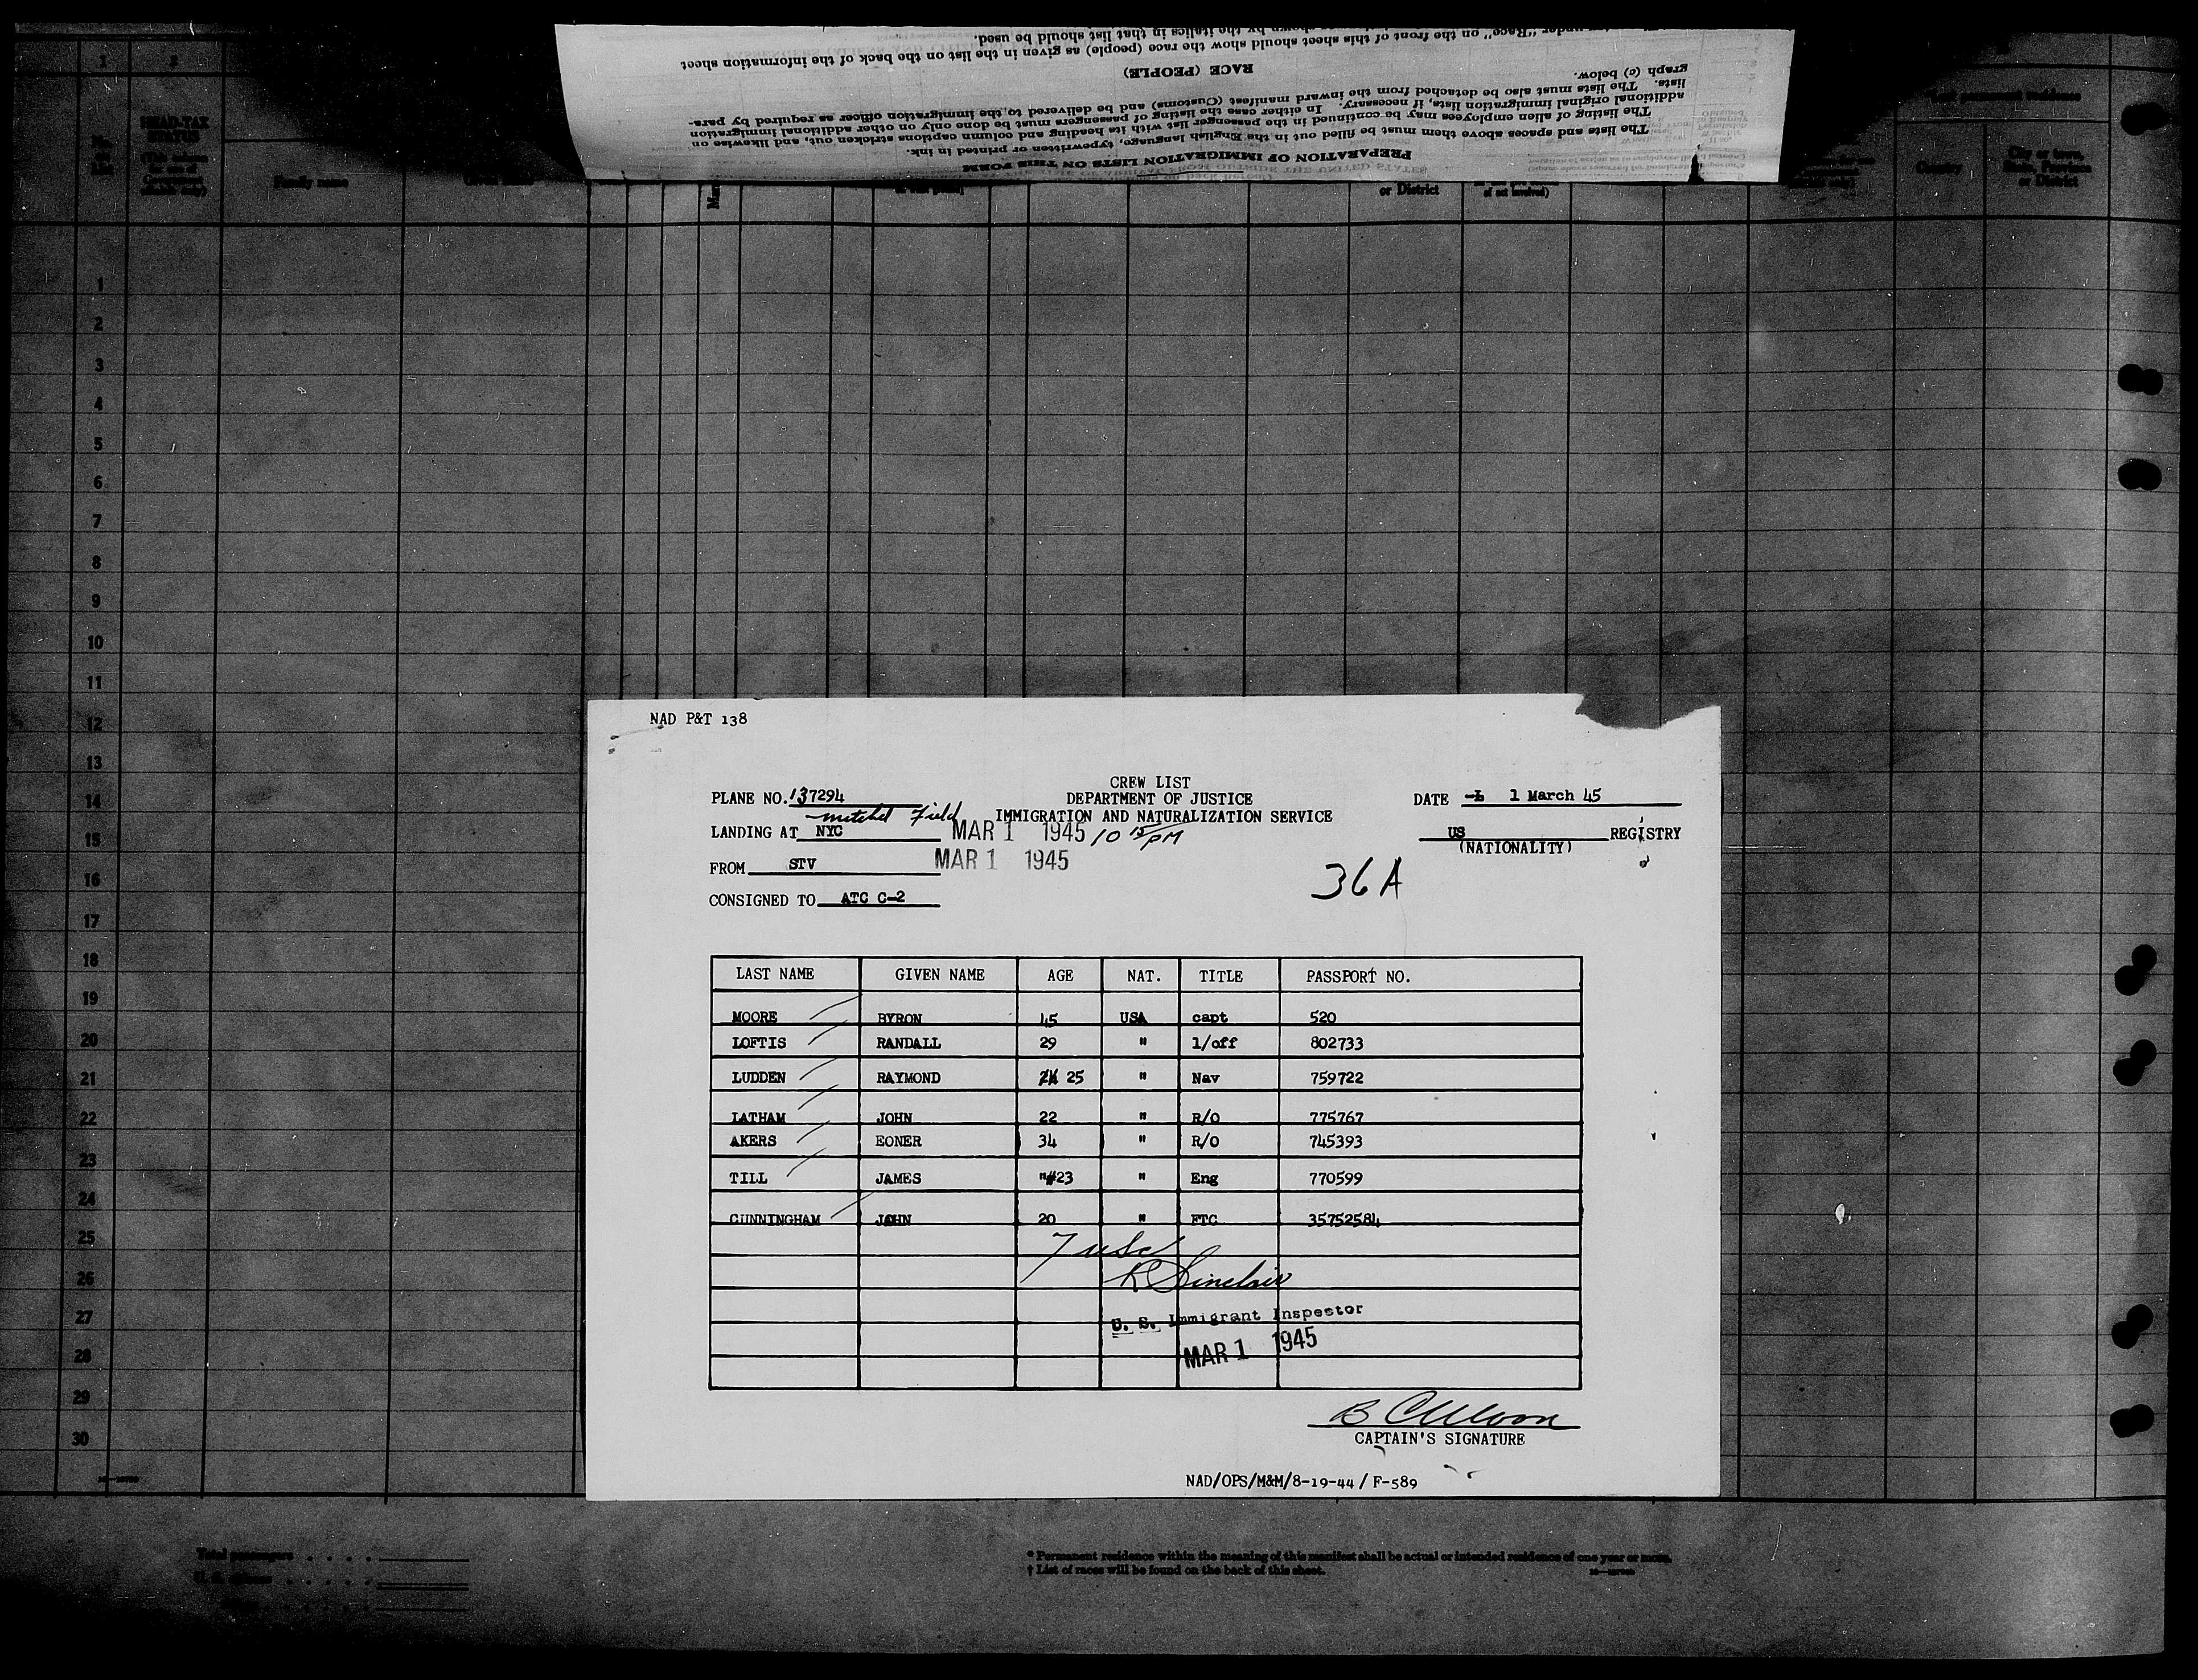 1 2
HEAD-TAX
STATUS
Family name
or District
Country
City or town,
State, Province
or District
PREPARATION OF IMMIGRATION LISTS ON THIS FORM
The lists and spaces above them must be filled out in the English language, typewritten or printed in ink.
The listing of alien employees may be continued in the passenger list with its heading and column captions stricken out, and likewise on
additional original immigration lists, if necessary. In either case the listing of passengers must be done only on other additional immigration
lists. The lists must also be detached from the inward manifest (Customs) and be delivered to the immigration officer as required by para-
graph (c) below.
RACE (PEOPLE)
under "Race" on the front of this sheet should show the race (people) as given in the list on the back of the information sheet
shown by the italics in that list should be used.
1
2
3
4
5
6
7
8
9
10
11
12
13
14
15
16
17
18
19
20
21
22
23
24
25
26
27
28
29
30
NAD P&T 138
CREW LIST
PLANE NO. 137294 DEPARTMENT OF JUSTICE DATE 1 March 45
Mitchel Field IMMIGRATION AND NATURALIZATION SERVICE
LANDING AT NYC MAR 1 1945 10 15 PM US REGISTRY
(NATIONALITY)
FROM STV MAR 1 1945
36A
CONSIGNED TO ATC C-2
LAST NAME GIVEN NAME AGE NAT. TITLE PASSPORT NO.
MOORE BYRON 45 USA capt 520
LOFTIS RANDALL 29 " 1/off 802733
LUDDEN RAYMOND 25 " Nav 759722
LATHAM JOHN 22 " R/O 775767
AKERS EONER 34 " R/O 745393
TILL JAMES 23 " Eng 770599
CUNNINGHAM JOHN 20 " FTC 35752584
7 usc
R Sinclair
U. S. Immigrant Inspector
MAR 1 1945
CAPTAIN'S SIGNATURE
NAD/OPS/M&M/8-19-44 / F-589
Total passengers
* Permanent residence within the meaning of this manifest shall be actual or intended residence of one year or more.
† List of races will be found on the back of this sheet.